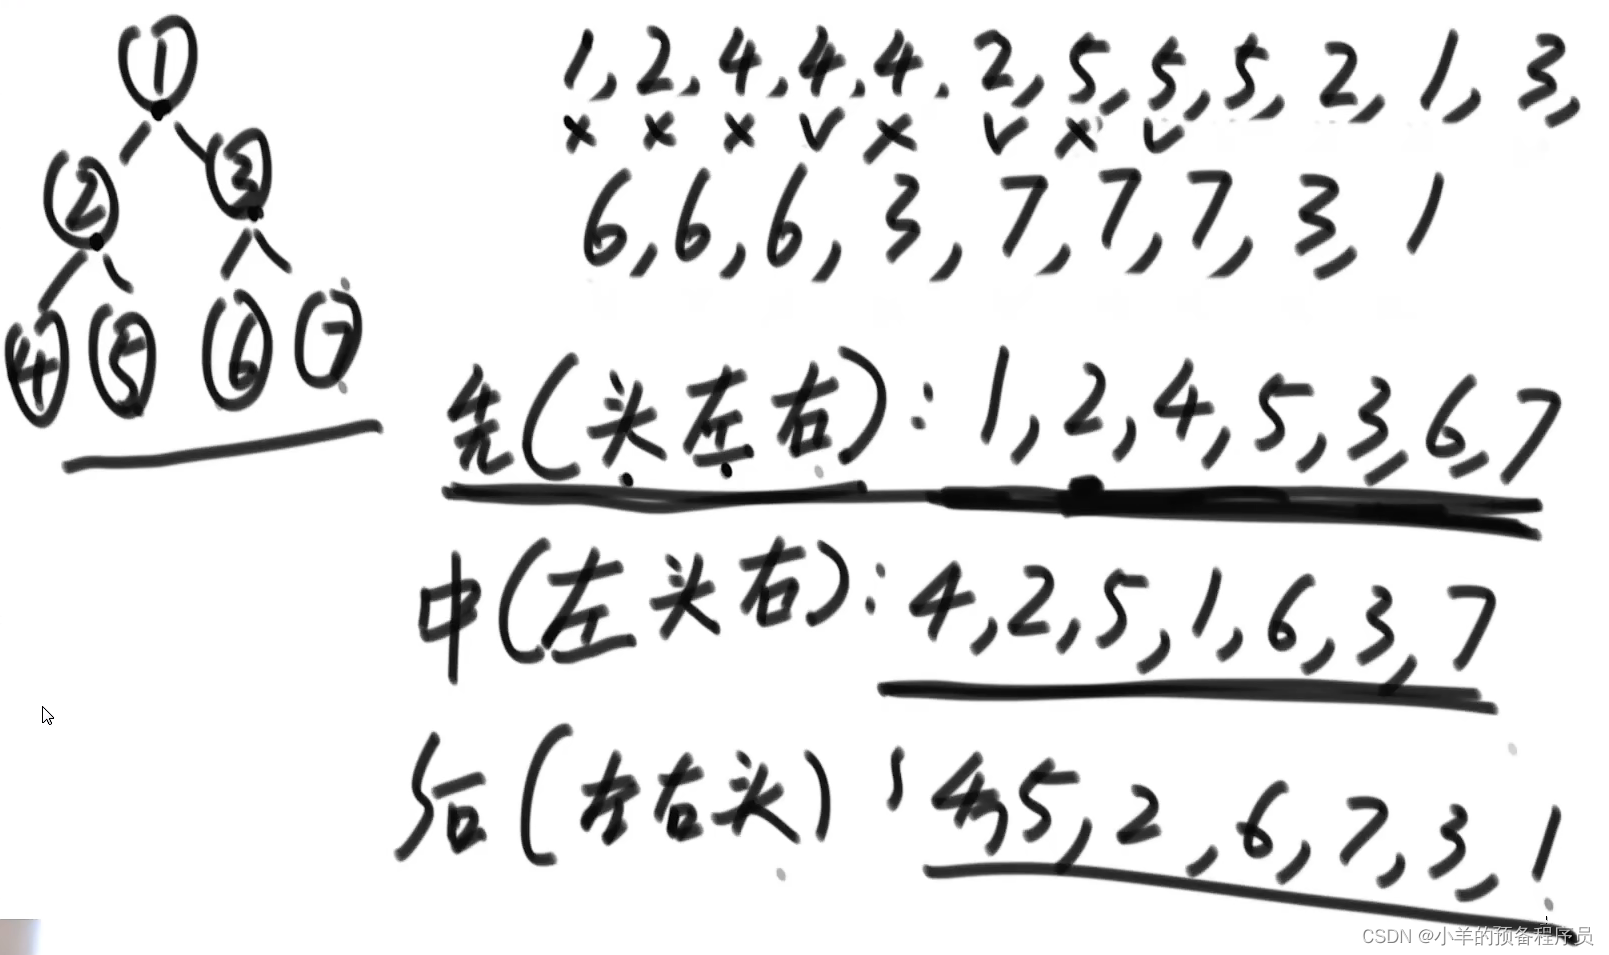 1
2 3
4 5 6 7
1, 2, 4, 4, 4, 2, 5, 5, 5, 2, 1, 3,
x x x v x v x v
6, 6, 6, 3, 7, 7, 7, 3, 1
先(头左右): 1, 2, 4, 5, 3, 6, 7
中(左头右): 4, 2, 5, 1, 6, 3, 7
后(左右头) 4, 5, 2, 6, 7, 3, 1
CSDN @小羊的预备程序员